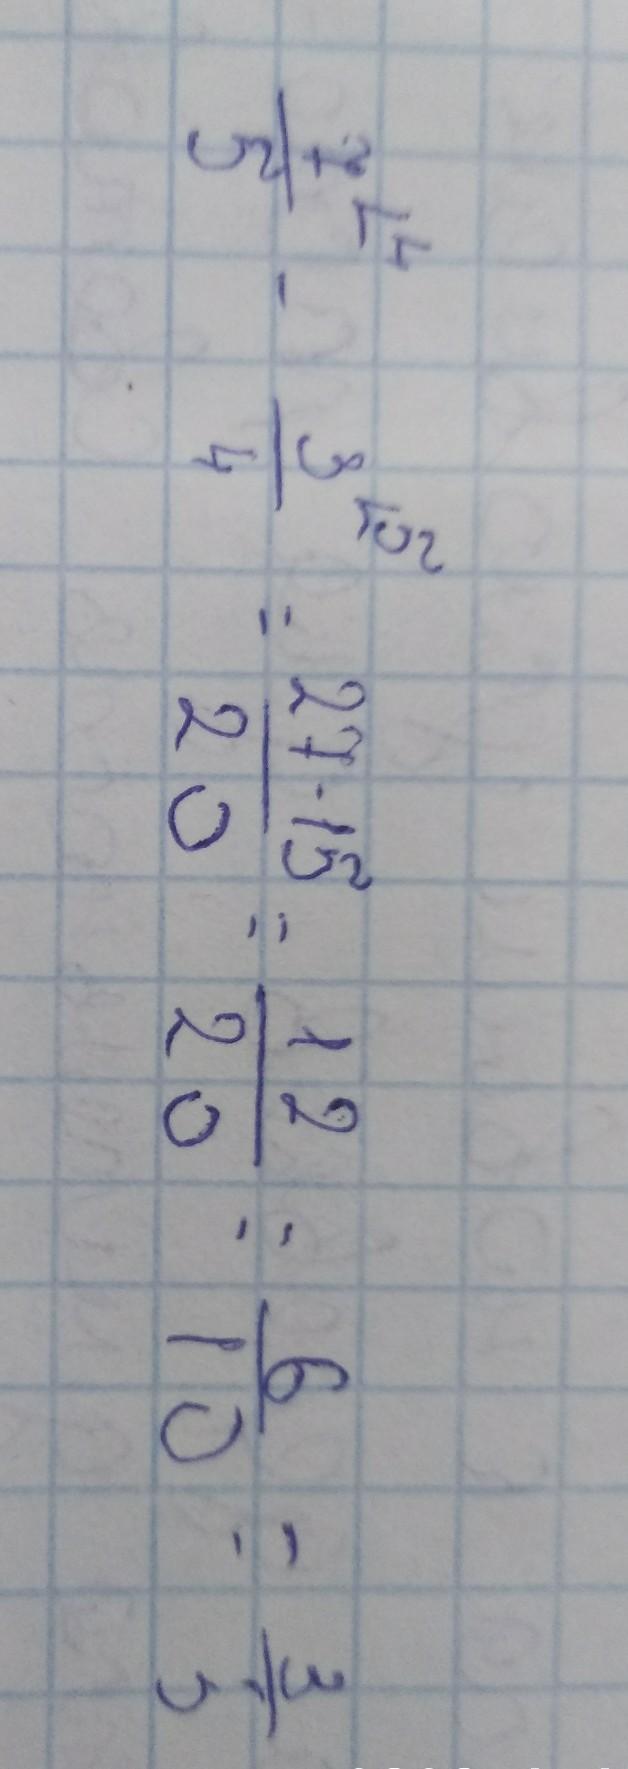 7⌊4/5 - 3⌊5/4 = 27-15/20 = 12/20 = 6/10 = 3/5